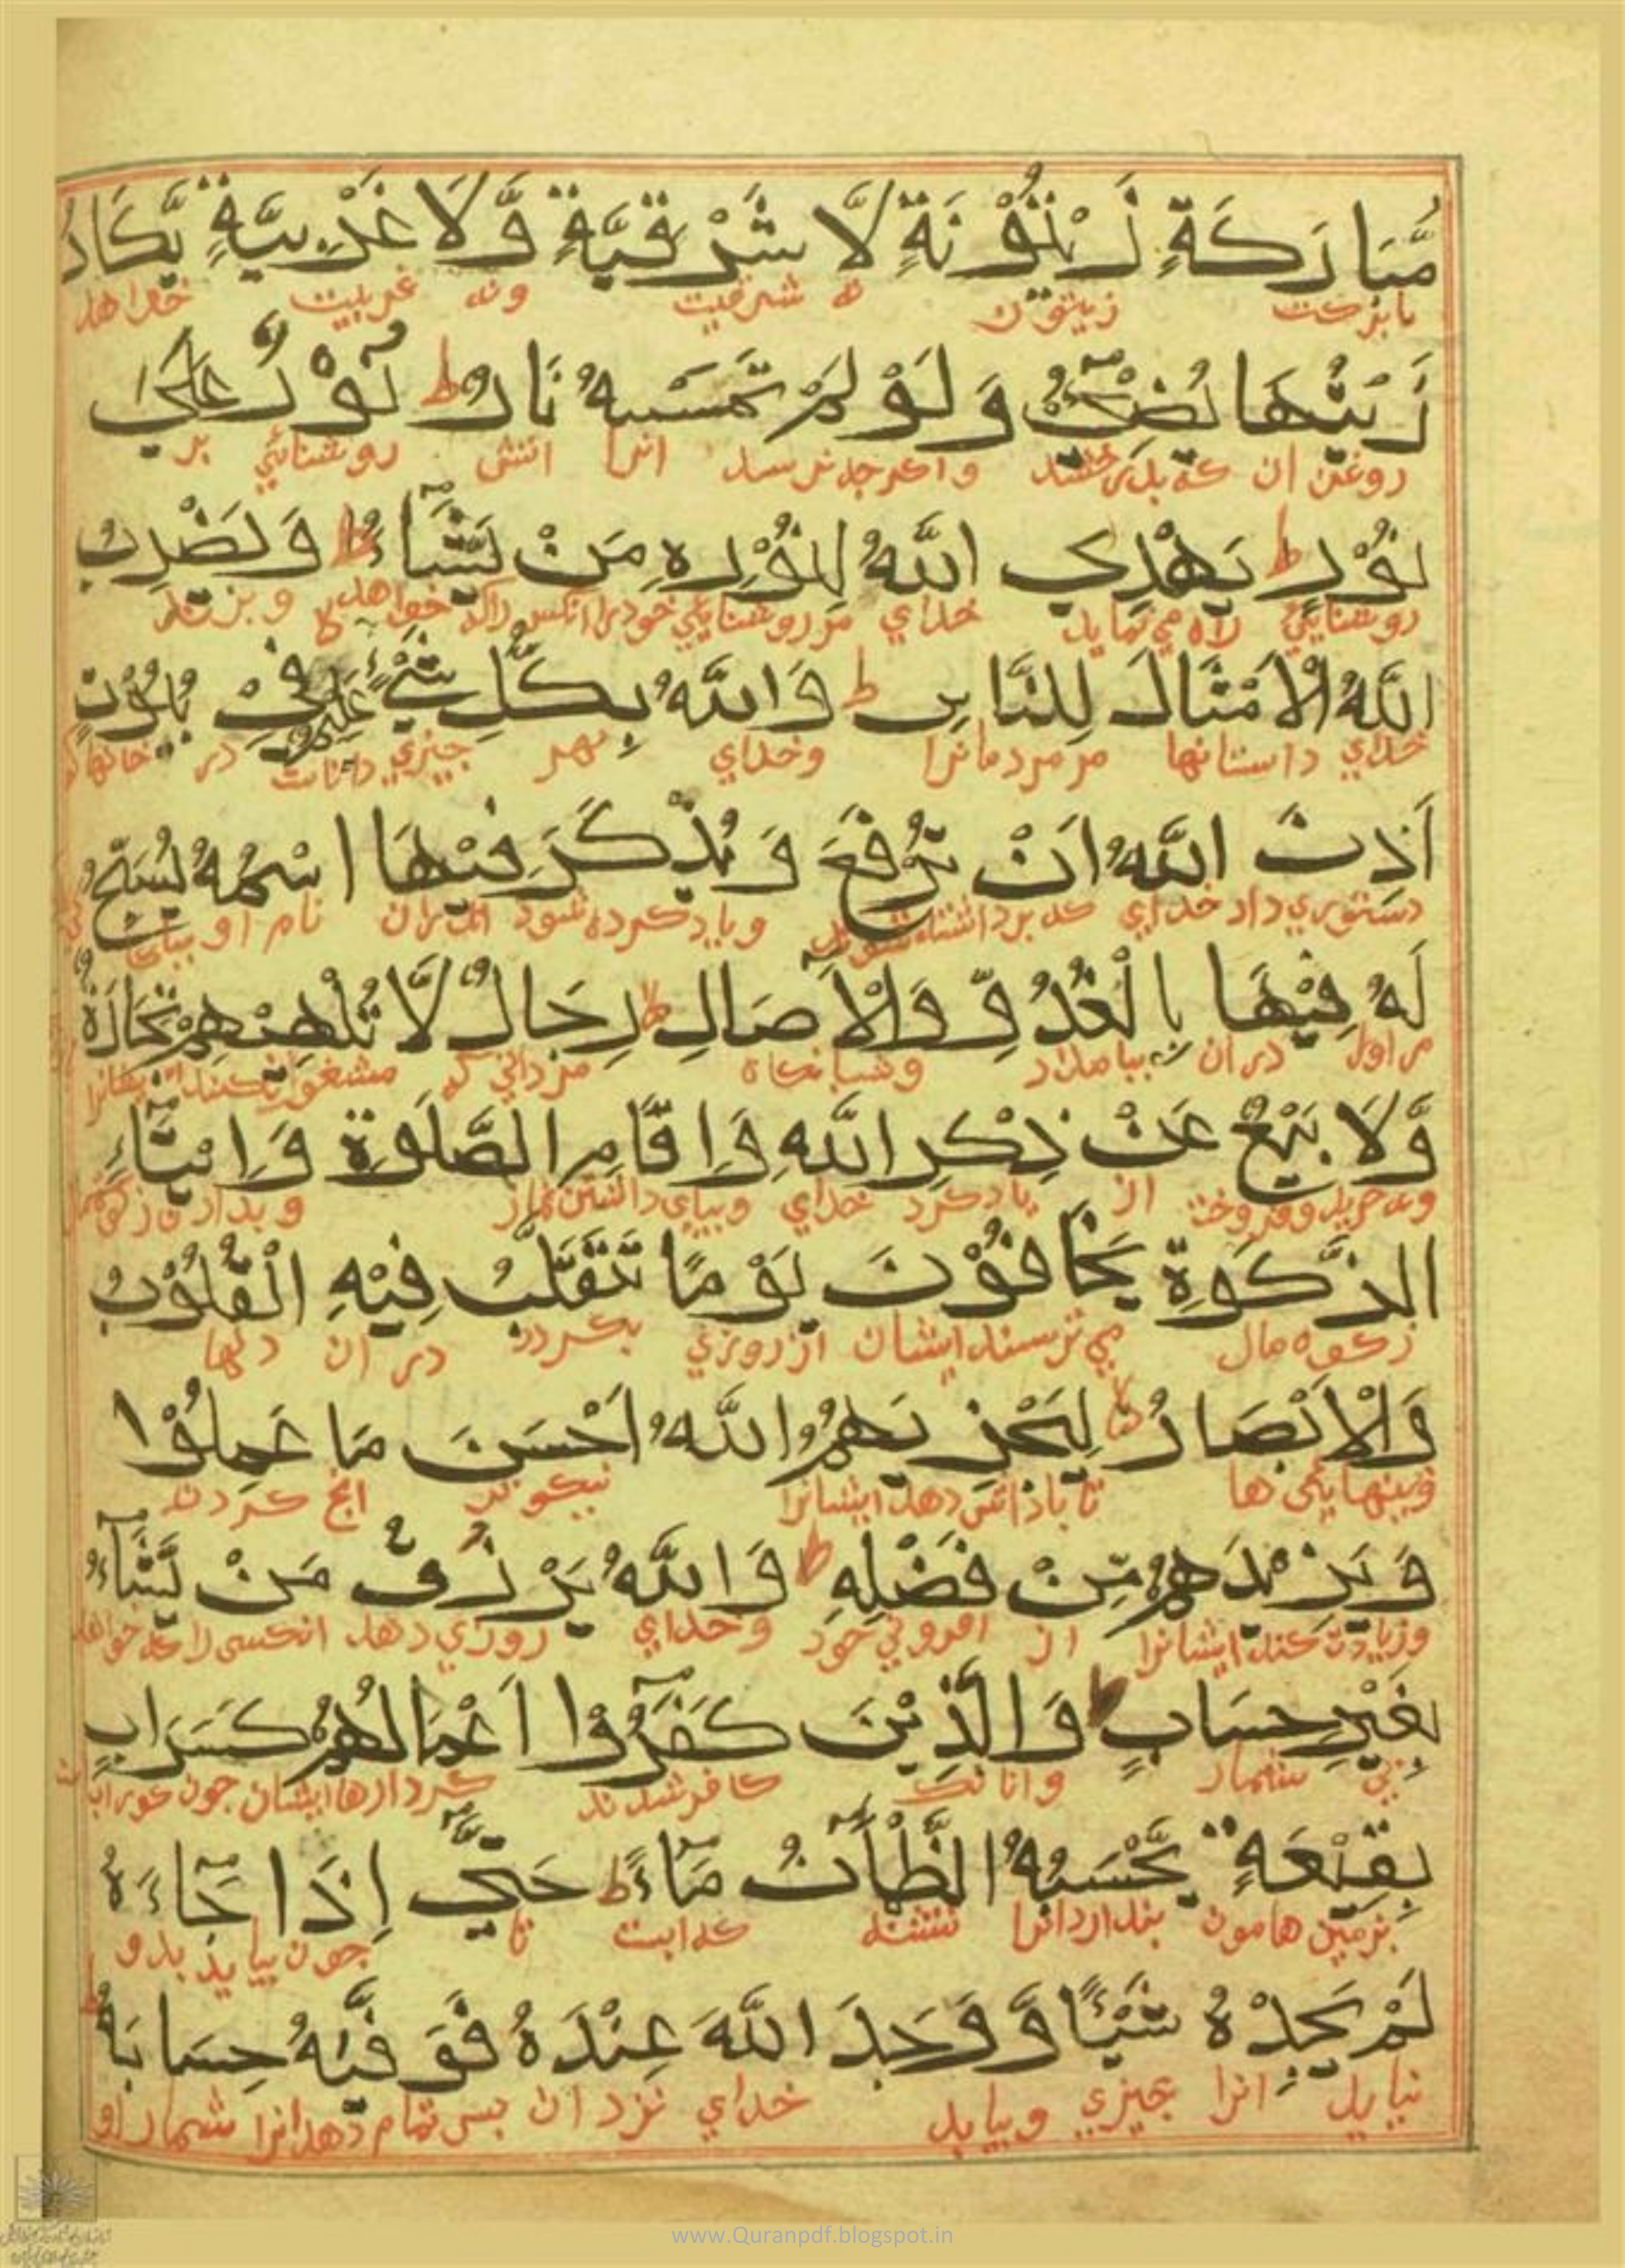 مُّبَارَكَةٍ زَيْتُوْنَةٍ لَّا شَرْقِيَّةٍ وَّلَا غَرْبِيَّةٍ يَّكَادُ
بابركت زيتون نه شرقيت ونه غربيت خواهد
زَيْتُهَا يُضِيْٓءُ وَلَوْ لَمْ تَمْسَسْهُ نَارٌ ط نُوْرٌ عَلٰى
روغن ان كه واكرچه نرسد انرا اتش روشنائي بر
نُوْرٍ ط يَهْدِي اللّٰهُ لِنُوْرِهٖ مَنْ يَّشَآءُ ط وَيَضْرِبُ
روشنايي راه مي نمايد خداي مر روشنايي خودرا انكس راكه خواهد و بزند
اللّٰهُ الْاَمْثَالَ لِلنَّاسِ ط وَاللّٰهُ بِكُلِّ شَيْءٍ عَلِيْمٌ فِيْ بُيُوْتٍ
خداي داستانها مر مردمانرا وخداي بهر چيزي داناست در خانها
اَذِنَ اللّٰهُ اَنْ تُرْفَعَ وَيُذْكَرَ فِيْهَا اسْمُهُ يُسَبِّحُ
دستوري داد خداي كه برداشته شود وياد كرده شود اندران نام او
لَهُ فِيْهَا بِالْغُدُوِّ وَالْاٰصَالِ لا رِجَالٌ لَّا تُلْهِيْهِمْ تِجَارَةٌ
مر اورا در ان ببامداد وشبانكاه مرداني كه مشغول نكند
وَّلَا بَيْعٌ عَنْ ذِكْرِ اللّٰهِ وَاِقَامِ الصَّلٰوةِ وَاِيْتَآءِ
ونه خريد وفروخت از ياد كرد خداي وبپاي داشتن نماز وبدادن زكوة
الزَّكٰوةِ يَخَافُوْنَ يَوْمًا تَتَقَلَّبُ فِيْهِ الْقُلُوْبُ
زكوه مال مي ترسند ايشان از روزي بكردد در ان دلها
وَالْاَبْصَارُ لا لِيَجْزِيَهُمُ اللّٰهُ اَحْسَنَ مَا عَمِلُوْا
وبينايي ها تا باداش دهد ايشانرا نيكوتر انچ كردند
وَيَزِيْدَهُمْ مِّنْ فَضْلِهٖ ط وَاللّٰهُ يَرْزُقُ مَنْ يَّشَآءُ
وزيادت كند ايشانرا از افزوني خود وخداي روزي دهد انكسي را كه خواهد
بِغَيْرِ حِسَابٍ وَالَّذِيْنَ كَفَرُوْٓا اَعْمَالُهُمْ كَسَرَابٍ
بي شمار وانانك كافر شدند كردارها ايشان چون
بِقِيْعَةٍ يَّحْسَبُهُ الظَّمْاٰنُ مَآءً ط حَتّٰٓى اِذَا جَآءَهُ
بزمين هامون پندارد انرا تشنه كه ابست تا چون بيايد بدو
لَمْ يَجِدْهُ شَيْئًا وَّوَجَدَ اللّٰهَ عِنْدَهُ فَوَفّٰيهُ حِسَابَهُ ط
نيابد انرا چيزي وبيابد خداي نزد ان پس تمام دهد انرا شمار او
www.Quranpdf.blogspot.in